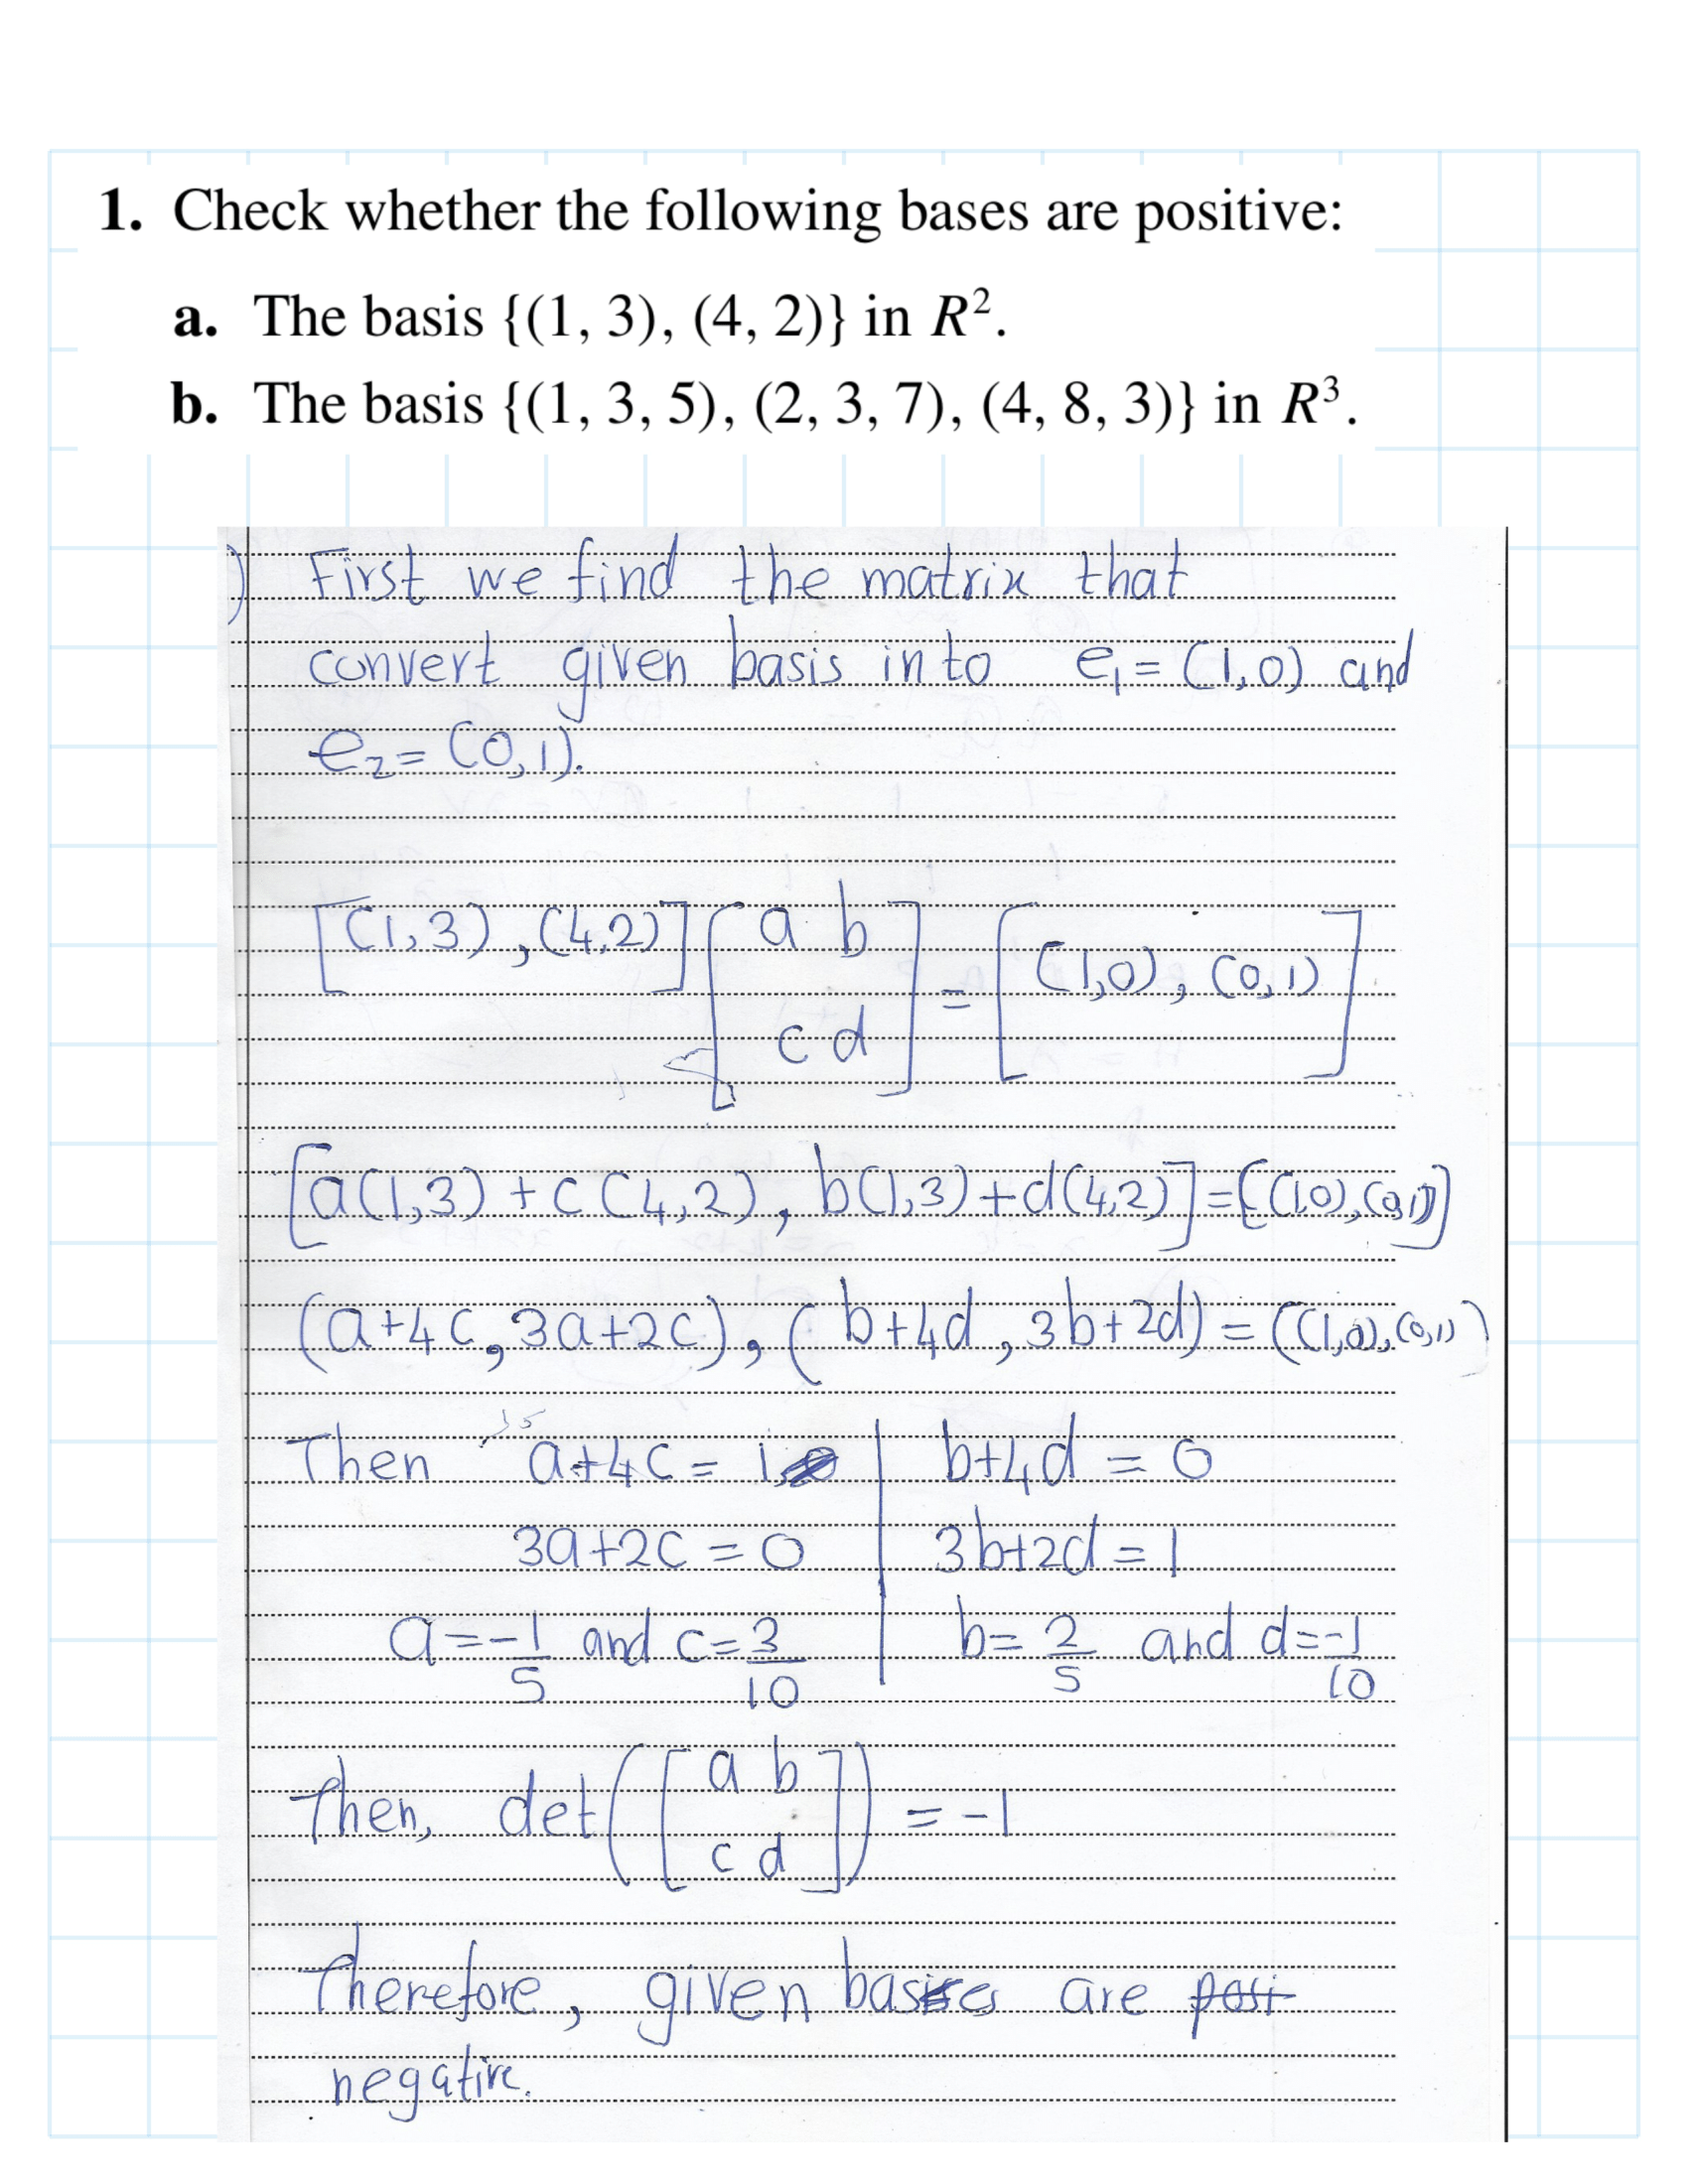 1. Check whether the following bases are positive:
a. The basis {(1, 3), (4, 2)} in R².
b. The basis {(1, 3, 5), (2, 3, 7), (4, 8, 3)} in R³.
) First we find the matrix that
convert given basis into e₁ = (1,0) and
e₂ = (0,1).
[(1,3), (4,2)] [a b
c d] = [(1,0), (0,1)]
[a(1,3) + c(4,2), b(1,3)+d(4,2)] = [(1,0),(0,1)]
(a+4c, 3a+2c), (b+4d, 3b+2d) = ((1,0),(0,1))
Then a+4c = 1 | b+4d = 0
3a+2c = 0 | 3b+2d = 1
a = -1/5 and c = 3/10 | b = 2/5 and d = -1/10
Then, det([a b
c d]) = -1
Therefore, given bases are posi
negative.